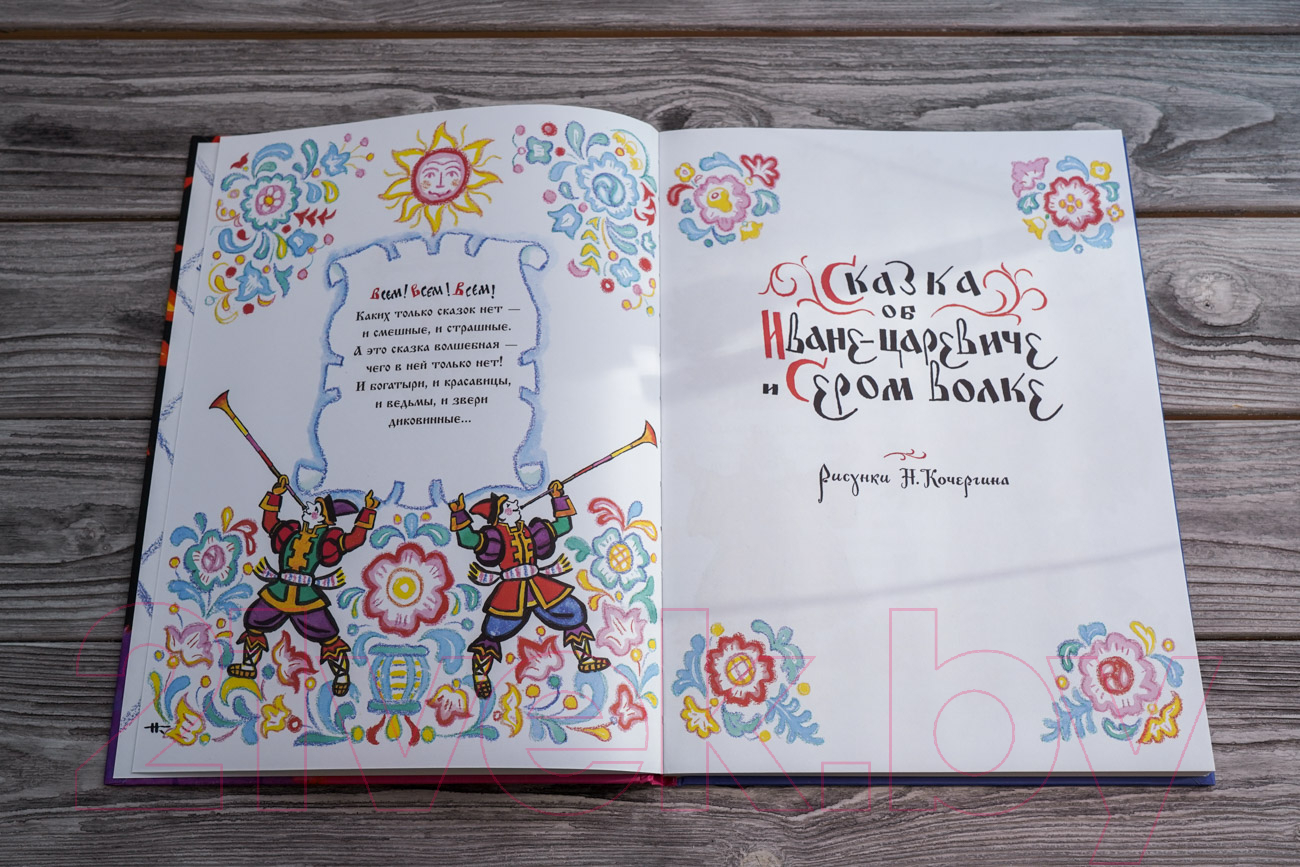 Всем! Всем! Всем!
Каких только сказок нет —
и смешные, и страшные.
А это сказка волшебная —
чего в ней только нет!
И богатыри, и красавицы,
и ведьмы, и звери
диковинные...
Сказка
об
Иване-царевиче
и Сером волке
Рисунки Н. Кочергина
21vek.by